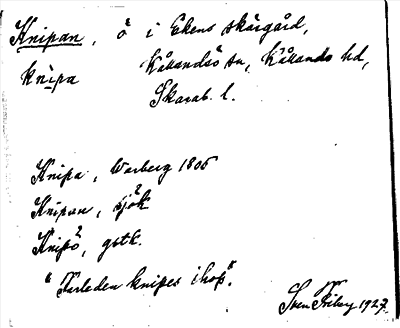 Knipan, ö i Ekens skärgård,
knipa Kållandsö sn, Kållands hd,
Skarab. l.
Knipa, Warberg 1806
Knipan, sjök
Knipö, gstk.
"Farleden knipes ihop".
Sven Friberg 1927.